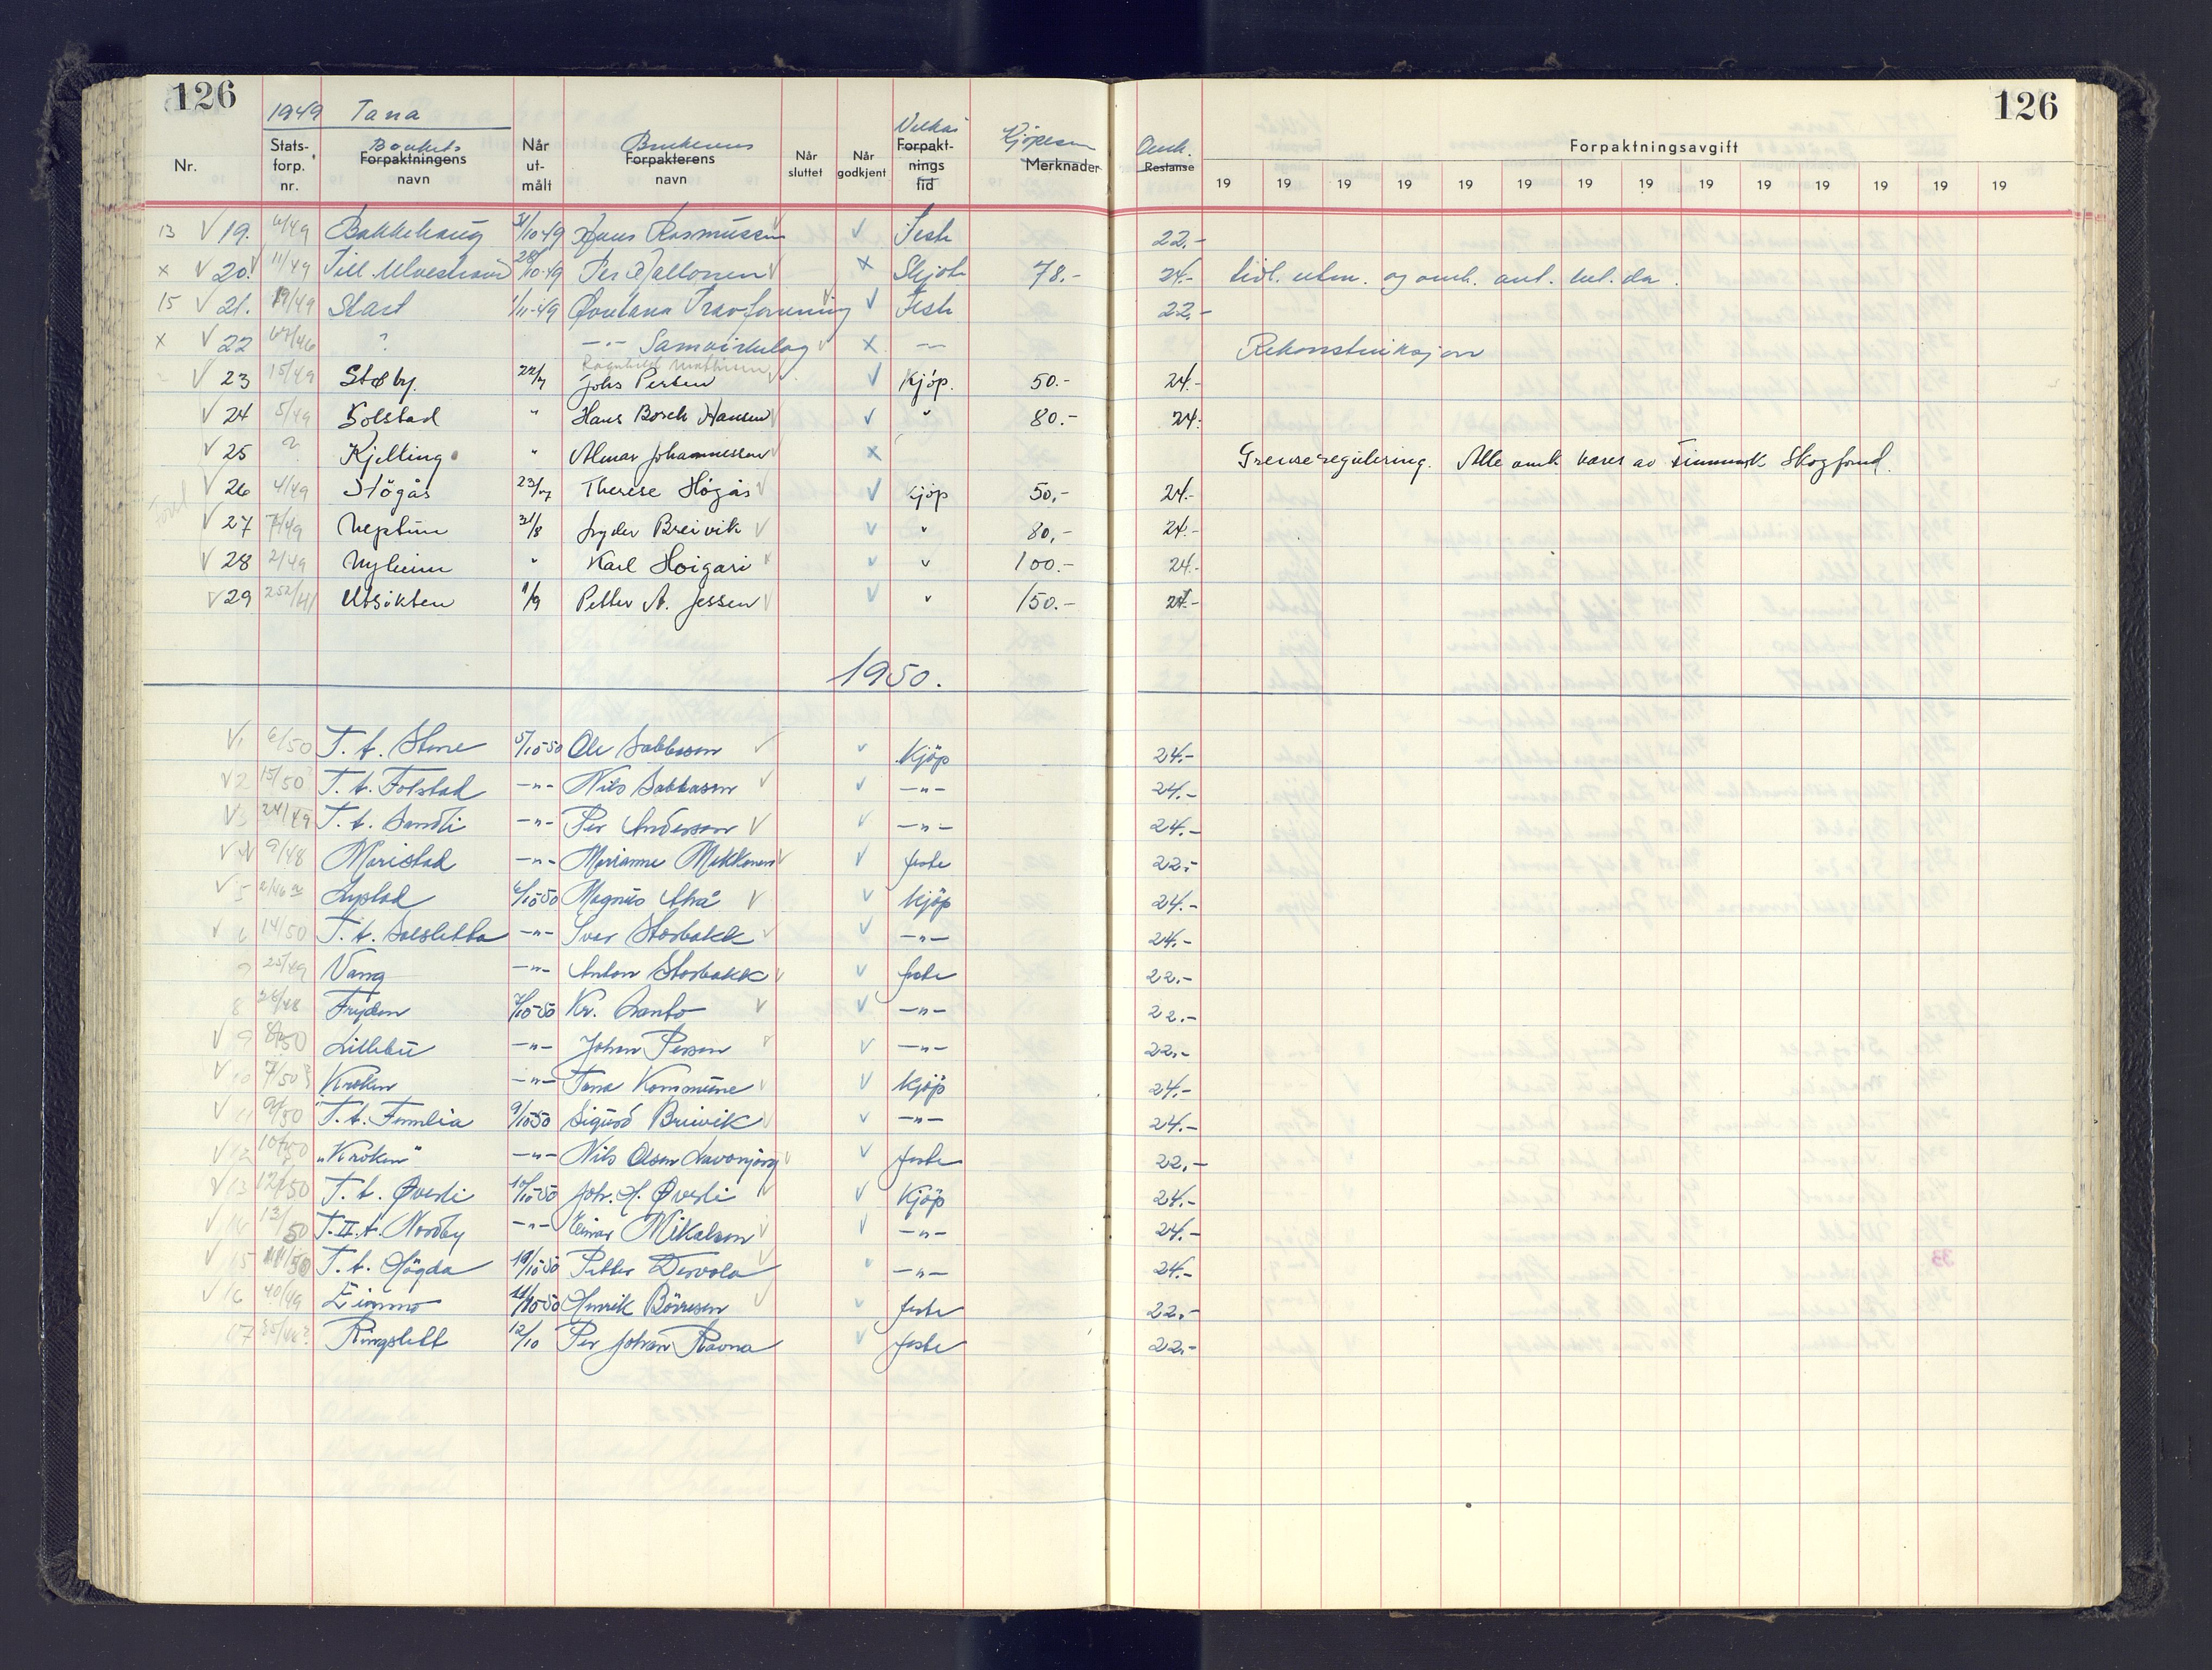 126
126
1949 Tana
Nr.
Stats-forp. nr.
Brukets
Forpaktningens navn
Når ut-målt
Brukerens
Forpakterens navn
Når sluttet
Når godkjent
Vilkår
Forpakt-nings tid
Kjøpesum
Merknader
Omk.
Restanse
Forpaktningsavgift
19 19 19 19 19 19 19 19 19 19 19 19 19 19
13 V 19. 6/49 Bakkehaug 31/10-49 Hans Rasmussen V Feste 22.-
x V 20. 11/49 Till. Ulvestrand 28/10-49 Per Hallonen x Skjøte 78.- 24.- tidl. utm. og omk. ant. bet. da.
15 V 21. 19/49 Start 1/11-49 Østtana Travforening V Feste 22.-
x V 22 67/46 ? -"- Samvirkelag x - Rekonstruksjon
V 23 15/49 Støby 22/7 Ragnhild Mathisen
Johs Persen V Kjøp. 50.- 24.-
V 24 5/49 Solstad " Hans Bosch Hansen V " 80.- 24.-
V 25 ? Kjelling " Almar Johannessen x Grenseregulering. Alle omk bæres av Finnmark Skogfond.
V 26 4/49 Högås 23/7 Therese Högås V kjöp 50,- 24.-
V 27 7/49 Neptun 31/8 Lyder Breivik V " 80,- 24.-
V 28 2/49 Nyheim " Karl Hoigari V " 100.- 24.-
V 29 252/41 Utsikten 1/9 Petter A. Jessen V " 150.- 24.-
1950.
V 1 6/50 T. t. Stene 5/10-50 Ole Sabbasen V Kjöp 24.-
V 2 15/50? T. t. Folstad -"- Nils Sabbasen V -"- 24.-
V 3 24/49 T. t. Sandli -"- Per Andersen V -"- 24.-
V 4 9/48 Maristad -"- Marianne Mikkonen V feste 22.-
V 5 2/46 Lyplad 6/10-50 Magnus Utså V kjöp 24.-
V 6 14/50 T. t. Solsletta -"- Ivar Storbakk V -"- 24.-
7 25/49 Vang -"- Anton Storbakk V feste 22.-
8 26/48 Fryden 7/10-50 Kr. Santo V -"- 22.-
V 9 8/50 Lillebu -"- Johan Persen V -"- 22.-
V 10 7/50? Kroken -"- Tana Kommune V kjöp 24.-
V 11 9/50 T. t. Furulia 9/10-50 Sigurd Breivik V -"- 24.-
V 12 10/50 "Kroken" -"- Nils Olsen Lavonjorg V feste 22.-
V 13 12/50 T. t. Øverli 10/10-50 Joh. H. Øverli V Kjöp 24.-
V 14 13/50 T. II. t. Nordby -"- Einar Mikalsen V -"- 24.-
V 15 11/50 T. t. Högda 10/10-50 Petter Dervola V -"- 24.-
V 16 40/49 11/10-50 Henrik Börresen V feste 22.-
17 35/48? Ringslett 12/10 Per Johan Ravna V feste 22.-